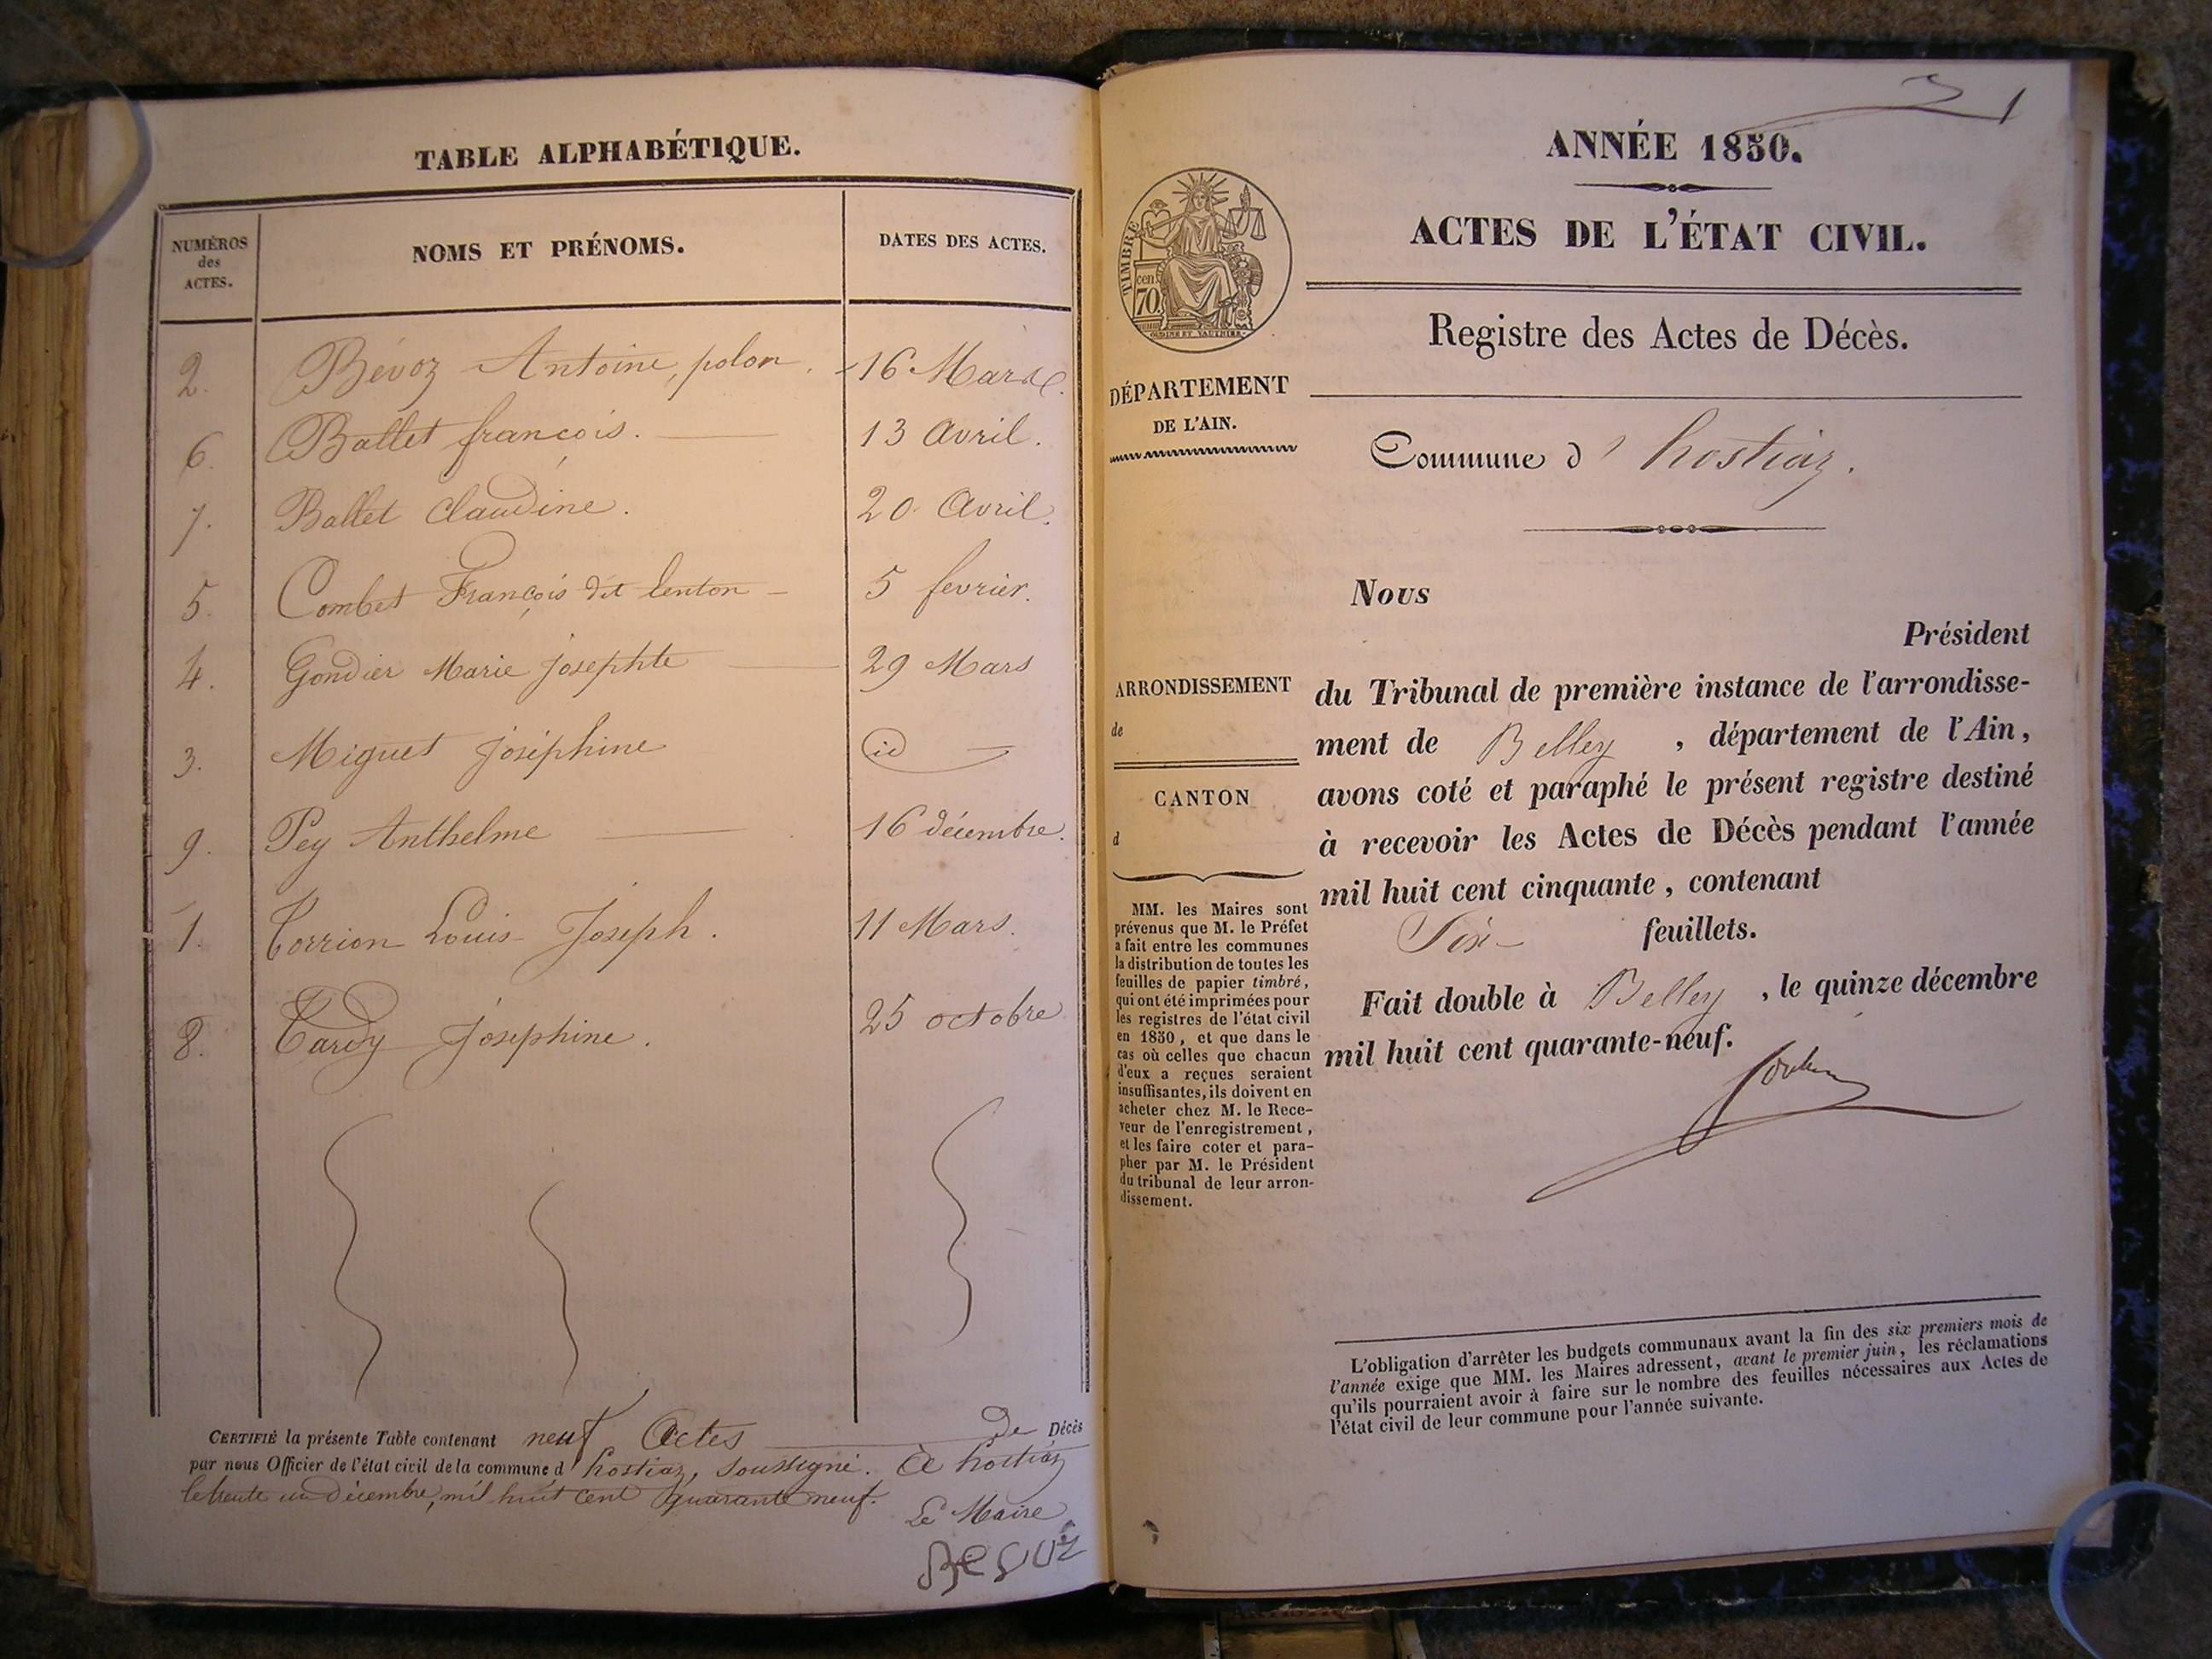 TABLE ALPHABÉTIQUE.
NUMÉROS des ACTES. NOMS ET PRÉNOMS. DATES DES ACTES.
2. Bévoz Antoine, polon. 16 Mars
6. Ballet françois. 13 Avril.
7. Ballet Claudine. 20 Avril.
5. Combet François dit lenton 5 fevrier.
4. Gondier Marie josephte 29 Mars
3. Miguet joséphine id
9. Pey Anthelme 16 décembre.
1. Torrion Louis Joseph. 11 Mars.
8. Tardy Josephine. 25 octobre
CERTIFIÉ la présente Table contenant neuf Actes de Décès
par nous Officier de l'état civil de la commune d'hostiaz, soussigné. A hostiaz
le trente un Décembre, mil huit cent quarante neuf.
Le Maire
BEVOZ
1
ANNÉE 1850.
ACTES DE L'ÉTAT CIVIL.
TIMBRE
cen. 70.
OUDINE ET VAUTHIER.
Registre des Actes de Décès.
DÉPARTEMENT
DE L'AIN.
Commune d'hostiaz.
Nous
Président
ARRONDISSEMENT
de
CANTON
d
du Tribunal de première instance de l'arrondisse-
ment de Belley , département de l'Ain,
avons coté et paraphé le présent registre destiné
à recevoir les Actes de Décès pendant l'année
mil huit cent cinquante, contenant
Six feuillets.
Fait double à Belley , le quinze décembre
mil huit cent quarante-neuf.
MM. les Maires sont
prévenus que M. le Préfet
a fait entre les communes
la distribution de toutes les
feuilles de papier timbré,
qui ont été imprimées pour
les registres de l'état civil
en 1850, et que dans le
cas où celles que chacun
d'eux a reçues seraient
insuffisantes, ils doivent en
acheter chez M. le Rece-
veur de l'enregistrement,
et les faire coter et para-
pher par M. le Président
du tribunal de leur arron-
dissement.
L'obligation d'arrêter les budgets communaux avant la fin des six premiers mois de
l'année exige que MM. les Maires adressent, avant le premier juin, les réclamations
qu'ils pourraient avoir à faire sur le nombre des feuilles nécessaires aux Actes de
l'état civil de leur commune pour l'année suivante.